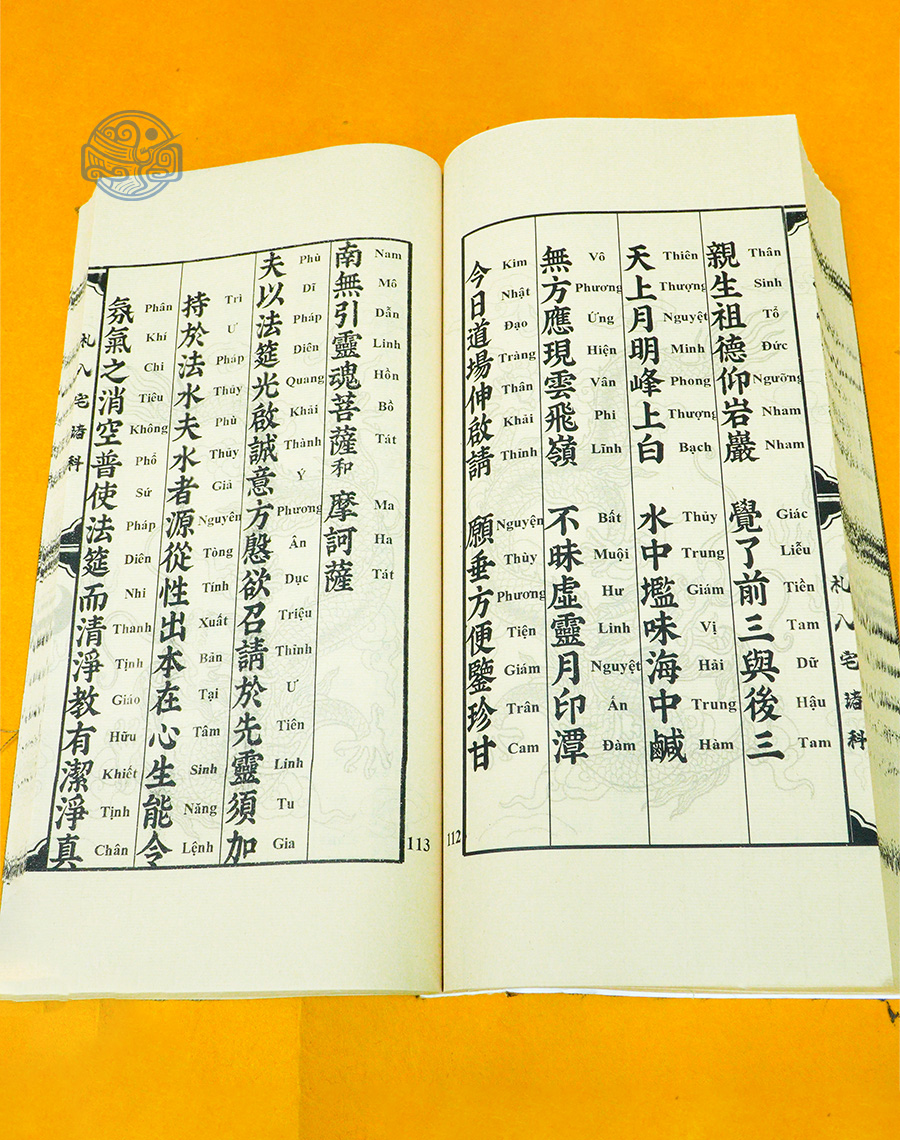 札八宅科
親生祖德仰岩巖 覺了前三與後三
Thân Sinh Tổ Đức Ngưỡng Nham Nham Giác Liễu Tiền Tam Dữ Hậu Tam
天上月明峰上白 水中壏味海中鹹
Thiên Thượng Nguyệt Minh Phong Thượng Bạch Thủy Trung Giám Vị Hải Trung Hàm
無方應現雲飛嶺 不昧虛靈月印潭
Vô Phương Ứng Hiện Vân Phi Lĩnh Bất Muội Hư Linh Nguyệt Ấn Đàm
今日道場伸啟請 願垂方便鑒珍甘
Kim Nhật Đạo Tràng Thân Khải Thỉnh Nguyện Thùy Phương Tiện Giám Trân Cam
112
南無引靈魂菩薩和 摩訶薩
Nam Mô Dẫn Linh Hồn Bồ Tát Ma Ha Tát
夫以法筵光啟誠意方慇欲召請於先靈須加
Phù Dĩ Pháp Diên Quang Khải Thành Ý Phương Ân Dục Triệu Thỉnh Ư Tiên Linh Tu Gia
持於法水夫水者源從性出本在心生能令
Trì Ư Pháp Thủy Phù Thủy Giả Nguyên Tòng Tính Xuất Bản Tại Tâm Sinh Năng Lệnh
氛氣之消空普使法筵而清淨教有潔淨真
Phân Khí Chi Tiêu Không Phổ Sứ Pháp Diên Nhi Thanh Tịnh Giáo Hữu Khiết Tịnh Chân
札八宅科
113